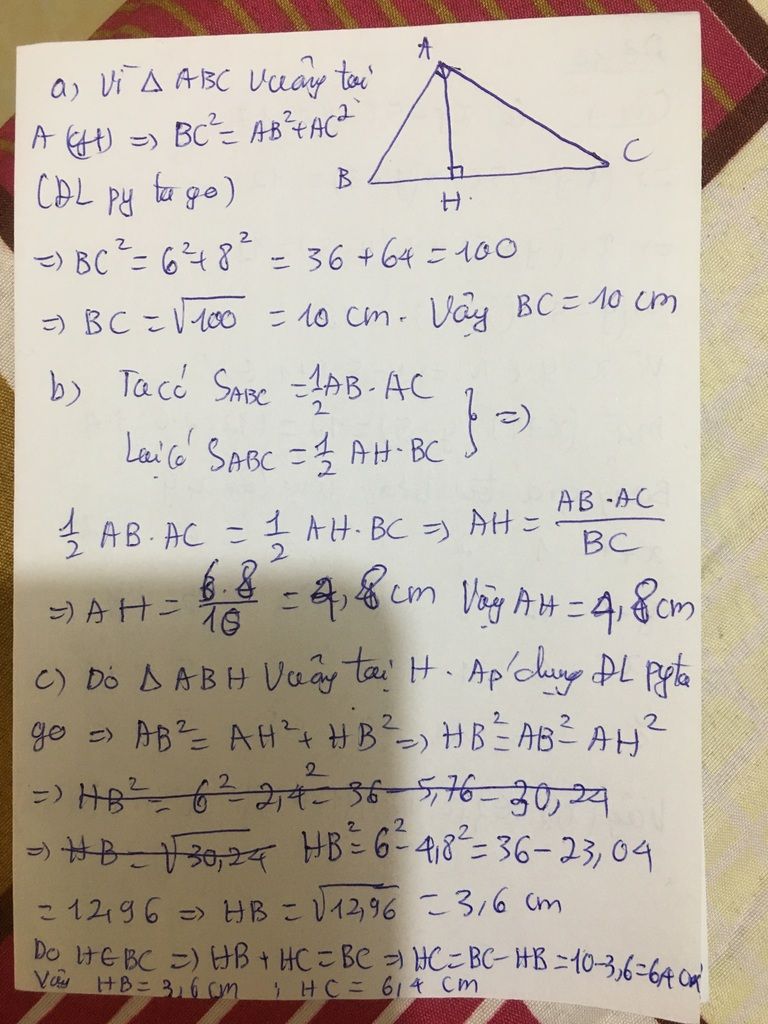 A
B
H
C
a) Vì Δ ABC vuông tại
A (gt) => BC² = AB² + AC²
(ĐL py ta go)
=> BC² = 6² + 8² = 36 + 64 = 100
=> BC = √100 = 10 cm. Vậy BC = 10 cm
b) Ta có SABC = 1/2 AB · AC
Lại có SABC = 1/2 AH · BC } =>
1/2 AB · AC = 1/2 AH · BC => AH = AB · AC / BC
=> AH = 6 · 8 / 10 = 4,8 cm Vậy AH = 4,8 cm
c) Do Δ ABH vuông tại H. Áp dụng ĐL pyta
go => AB² = AH² + HB² => HB² = AB² - AH²
=> HB² = 6² - 2,4² = 36 - 5,76 - 30,24
=> HB = √30,24 HB² = 6² - 4,8² = 36 - 23,04
= 12,96 => HB = √12,96 = 3,6 cm
Do H∈BC => HB + HC = BC => HC = BC - HB = 10 - 3,6 = 6,4 cm
Vậy HB = 3,6 cm ; HC = 6,4 cm